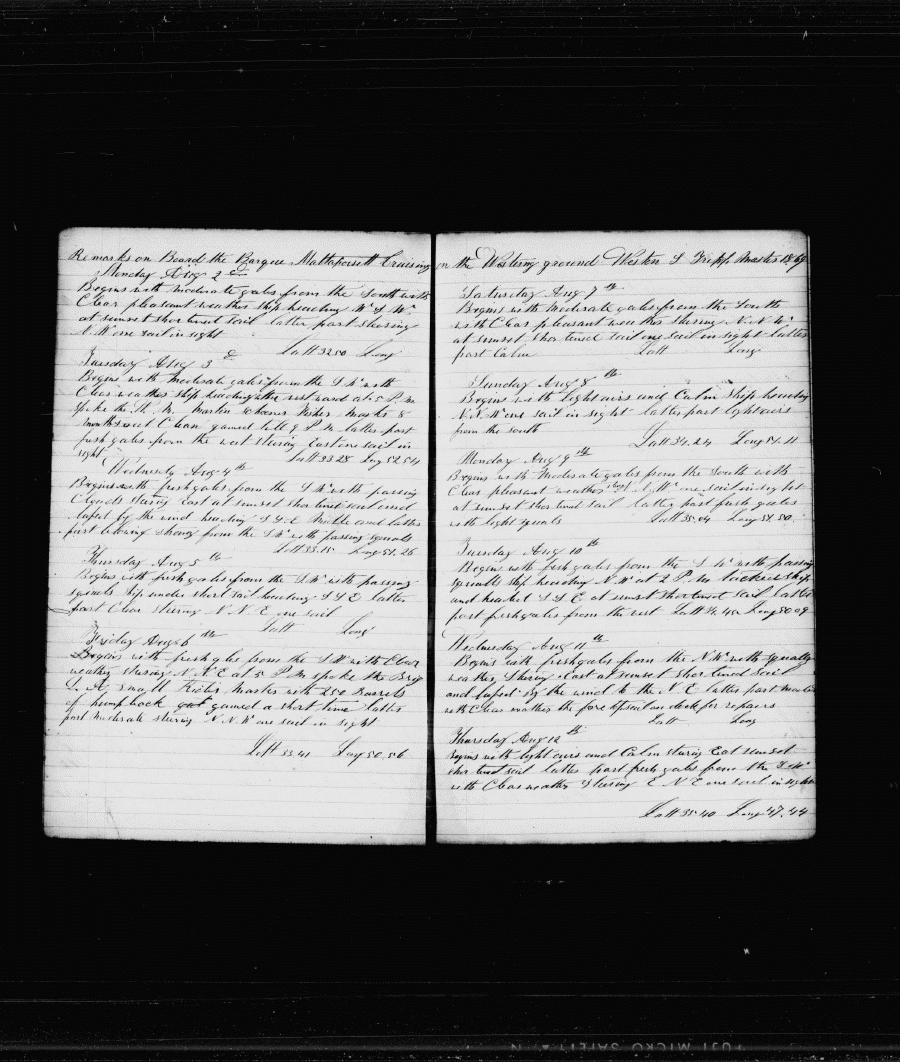 Remarks on Board the Barque Mattapoisett Cruising on the Western ground Weston S Tripp Master 1869
Monday Aug 2d
Begins with moderate gales from the South with
Clear pleasant weather ship heading W S W
at sunset shortened sail latter part steering
N W one sail in sight
Latt 32 50 Long
Tuesday Aug 3d
Begins with moderate gales from the S W with
Clear weather ship heading the westward at 5 P M
spoke the Schooner Fisher Marks 8
months out Clean gamed till 9 P M latter part
fresh gales from the west steering East one sail in
sight Latt 33 28 Long 52 54
Wednesday Aug 4th
Begins with fresh gales from the S W with passing
Clouds steering East at sunset shortened sail and
luffed by the wind heading S S E Middle and latter
part blowing strong from the S W with passing squalls
Latt 33.15 Long 51.26
Thursday Aug 5th
Begins with fresh gales from the S W with passing
squals Ship under short sail heading S S E latter
part Clear steering N N E one sail
Latt Long
Friday Aug 6th
Begins with fresh gales from the S W with Clear
weather steering N N E at 5 P M spoke the Brig
master with 250 Barrels
of humpback gamed a short time latter
part moderate steering N N W one sail in sight
Latt 33.41 Long 50.56
Saturday Aug 7th
Begins with moderate gales from the South
with Clear pleasant weather steering N N W
at sunset shortened sail one sail in sight latter
part Calm Latt Long
Sunday Aug 8th
Begins with light airs and Calm ship heading
N N W one sail in sight latter part light airs
from the south
Latt 34.24 Long 51.11
Monday Aug 9th
Begins with Moderate gales from the South with
Clear pleasant weather N W one sail in sight
at sunset shortened sail latter part fresh gales
with light squals Latt 35.04 Long 51.50
Tuesday Aug 10th
Begins with fresh gales from the S W with passing
squalls ship heading N W at 2 P M tacked ship
and headed S S E at sunset shortened sail latter
part fresh gales from the west Latt 34.40 Long 50 09
Wednesday Aug 11th
Begins with fresh gales from the N W with squally
weather steering East at sunset shortened sail
and lufed by the wind to the N E latter part
with Clear weather the fore topsail on deck for repairs
Latt Long
Thursday Aug 12th
Begins with light airs and Calm steering East at sunset
shortened sail latter part fresh gales from the S W
with Clear weather steering E N E one sail in sight
Latt 35.40 Long 47.44
FUJI MICRO SAFETY